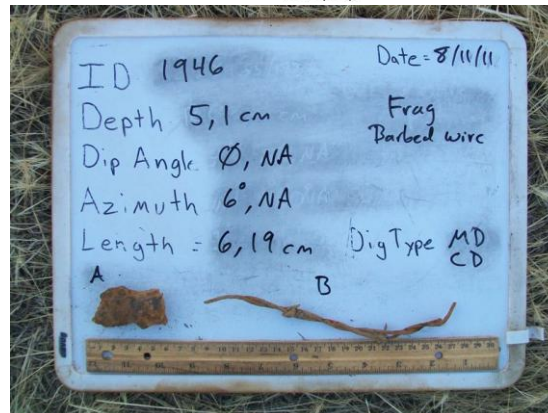 ID 1946
Date = 8/11/11
Depth 5,1 cm
Frag
Barbed wire
Dip Angle Ø, NA
Azimuth 6°, NA
Length = 6,19 cm
Dig Type MD
CD
A
B